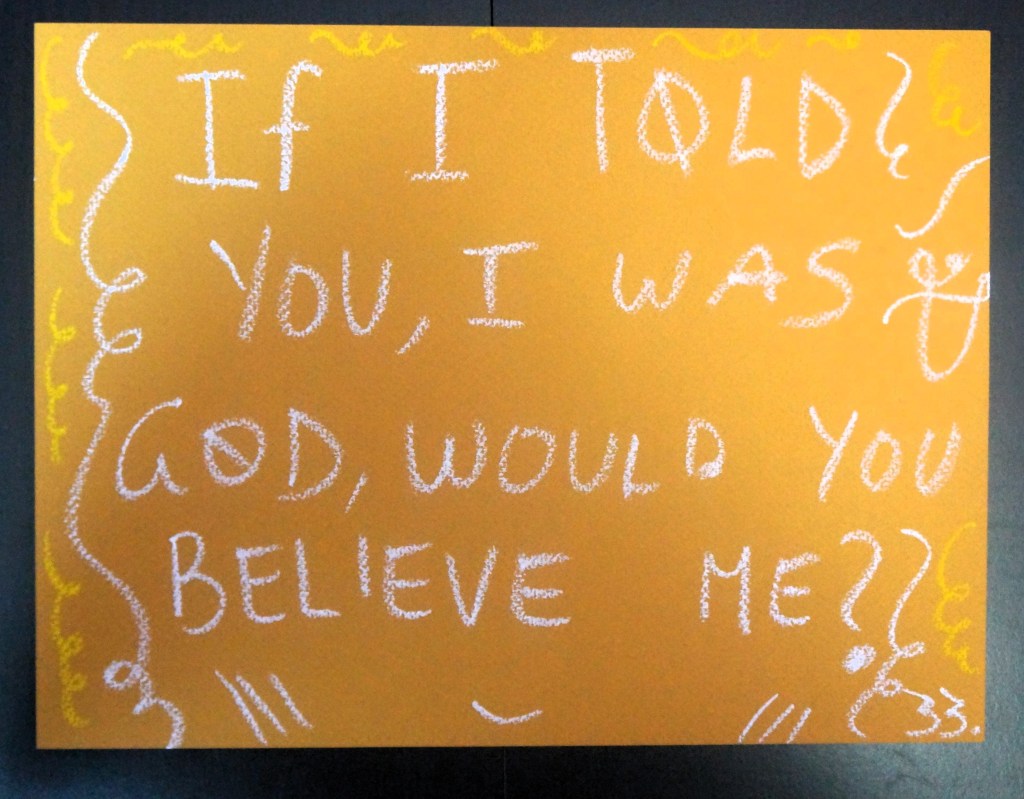 If I TOLD
YOU, I WAS
GOD, WOULD YOU
BELIEVE ME?
33.